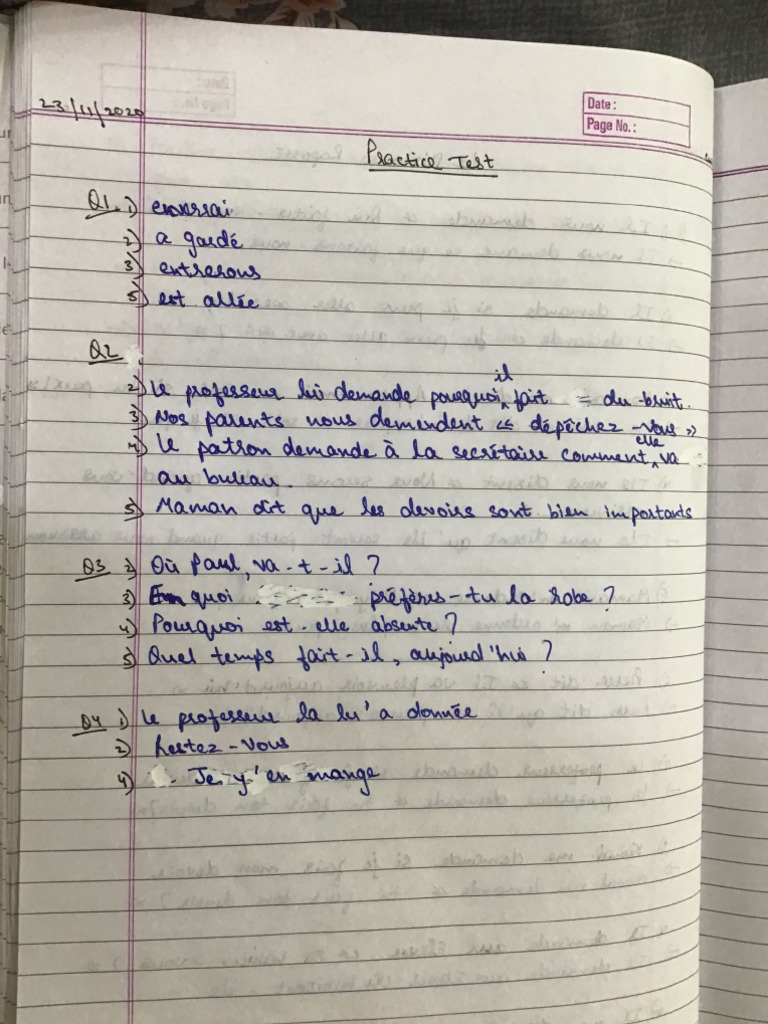 23/11/2020
Date :
Page No.:
Practice Test
Q1. 1)
2) a gardé
3) entrerons
5) est allée
Q2
2) Le professeur lui demande pourquoi il fait = du bruit.
3) Nos parents nous demendent << dépêchez-vous >>
4) Le patron demande à la secrétaire comment elle va
au bureau.
5) Maman dit que les devoirs sont bien importants
Q3 2) Où Paul, va-t-il ?
3) quoi préfères-tu la robe ?
4) Pourquoi est-elle absente ?
5) Quel temps fait-il, aujourd'hui ?
Q4 1) Le professeur la lu'a donnée
2) Restez-vous
4) Je y'en mange